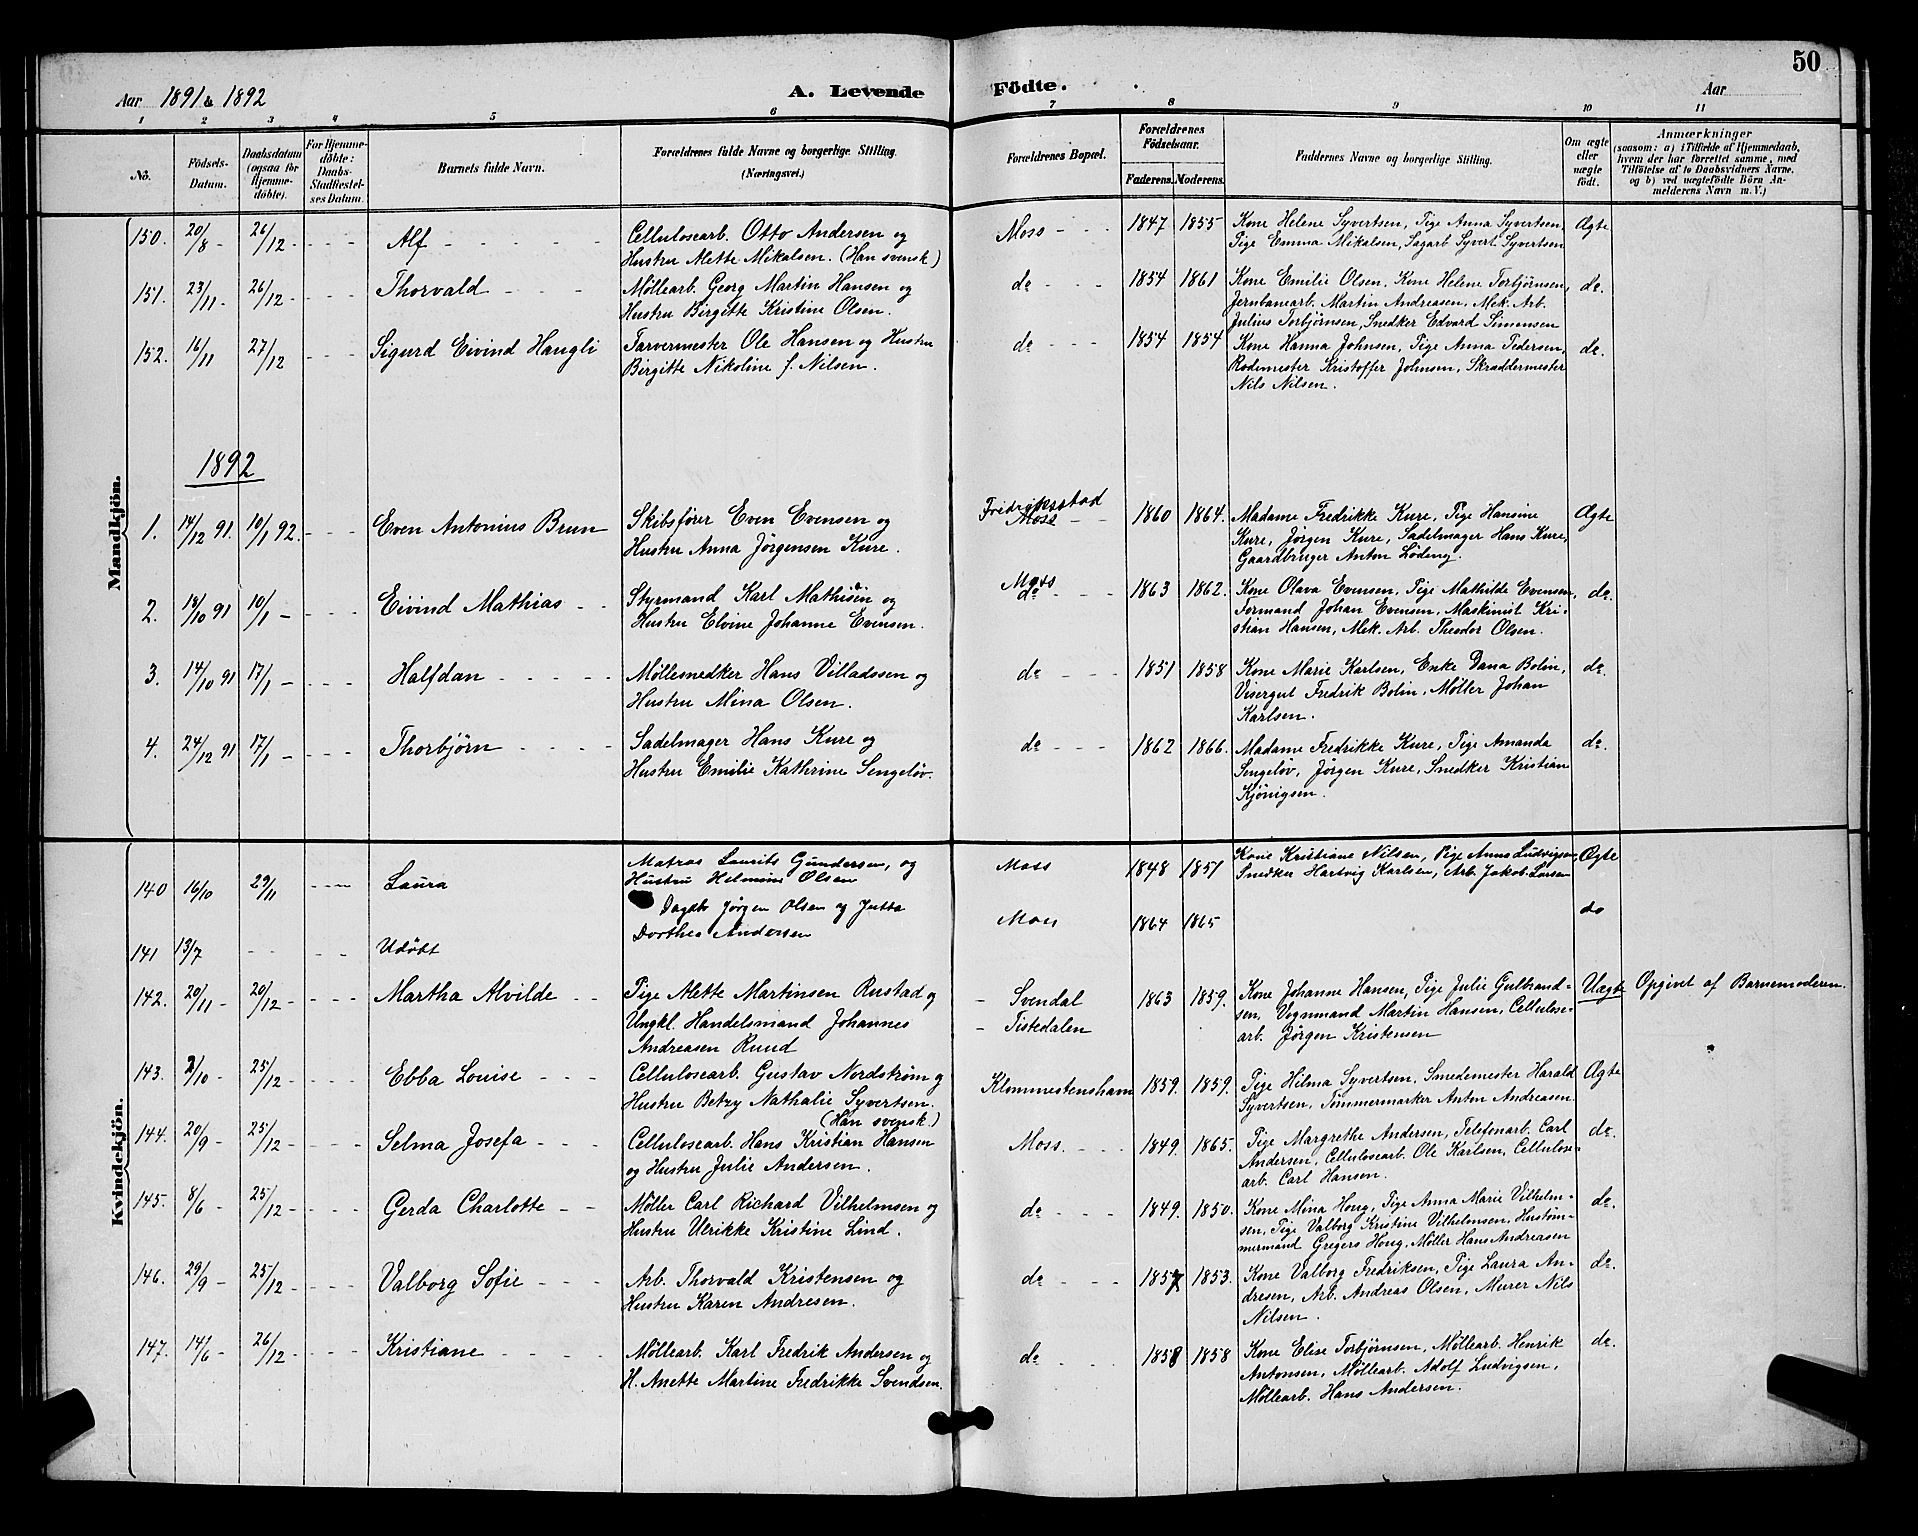 50
Aar 1891 & 1892
A. Levende Födte.
Aar
1 2 3 4 5 6 7 8 9 10 11
No.
Födsels-Datum.
Daabsdatum (ogsaa for Hjemme-døbte).
For Hjemme-døbte: Daabs-Stadfæstel-ses Datum.
Barnets fulde Navn.
Forældrenes fulde Navne og borgerlige Stilling. (Næringsvei.)
Forældrenes Bopæl.
Forældrenes Födselsaar.
Faderens. Moderens.
Faddernes Navne og borgerlige Stilling.
Om ægte eller uægte födt.
Anmærkninger
(saasom: a) i Tilfælde af Hjemmedaab, hvem der har forrettet samme, med Tilföielse af to Daabsvidners Navne, og b) ved uægtefödte Börn Anmelderens Navn m. V.)
Mandkjön.
150. 20/8 - 26/12 - - - - Alf - - - -
Cellulosearb. Otto Andersen og
Hustru Alette Mikalsen. (Han svensk)
Moss - - - 1847 1855
Kone Helene Syvertsen, Pige Anna Syvertsen,
Pige Emma Mikalsen, Sagarb. Syvert Syvertsen
Ægte
151. 23/11 - 26/12 - - - - Thorvald - - - -
Møllearb. Georg Martin Hansen og
Hustru Birgitte Kristine Olsen.
do - - - 1854 1861
Kone Emilie Olsen, Kone Helene Torbjørnsen,
Jernbanearb. Martin Andreasen, Mek. Arb.
Julius Torbjørnsen, Snedker Edvard Simensen
do.
152. 16/11 27/12 - - - Sigurd Eivind Haugli
Farvermester Ole Hansen og Hustru
Birgitte Nikoline f. Nilsen.
do - - - 1854 1854
Kone Hanna Johnsen, Pige Anna Pedersen,
Rodemester Kristoffer Johnsen, Skræddermester
Nils Nilsen.
do.
1892
1. 14/12 91. 10/1 92. - - - Even Antonius Brun
Skibsfører Even Evensen og
Hustru Anna Jörgensen Kure.
Fredriksstad
Moss - - 1860 1864.
Madame Fredrikke Kure, Pige Hansine
Kure, Jörgen Kure, Sadelmager Hans Kure,
Gaardbruger Anton Löding.
Ægte
2. 18/10 91 10/1 - - - - Eivind Mathias - -
Styrmand Karl Mathisen og
Hustru Elvine Johanne Evensen.
Moss
do - - - 1863 1862.
Kone Olava Evensen, Pige Mathilde Evensen,
Formand Johan Evensen, Maskinist Kri-
stian Hansen, Mek. Arb. Theodor Olsen.
do.
3. 14/10 91 17/1 - - - - Halfdan - - - - -
Møllesnedker Hans Villadssen og
Hustru Mina Olsen.
do - - - 1851 1858
Kone Marie Karlsen, Enke Dana Bolin,
Visergut Fredrik Bolin, Møller Johan
Karlsen.
do.
4. 24/12 91 17/1 - - - - Thorbjörn - - - -
Sadelmager Hans Kure og
Hustru Emilie Kathrine Sengelöv.
do - - - 1862 1866.
Madame Fredrikke Kure, Pige Amanda
Sengelöv, Jörgen Kure, Snedker Kristian
Kjönigsen.
do.
Kvindekjön.
140 16/10 29/11 - - - Laura
Matros Laurits Gundersen, og
Hustru Helmine Olsen
Moss 1848 1851
Kone Kristiane Nilsen, Pige Anna Ludvigsen,
Snedker Hartvig Karlsen, Arb. Jakob Larsen
Ægte
141 13/7 - - - - Udöbt
Dagarb Jörgen Olsen og Jutta
Dorthea Andersen
Moss 1864 1865
do
142. 20/11 - 20/12 - - - - Martha Alvilde - -
Pige Alette Martinsen Rustad og
Ungkl. Handelsmand Johannes
Andreasen Ruud
- Svendal
- Tistedalen
1863 1859.
Kone Johanne Hansen, Pige Julie Gulbrand-
sen, Vognmand Martin Hansen, Cellulose-
arb. Jörgen Kristensen
Uægte Opgivet af Barnemoderen.
143. 2/10 - 25/12 - - - - Ebba Louise - - -
Cellulosearb. Gustav Nordstrøm og
Hustru Betzy Nathalie Syvertsen.
(Han svensk.)
Klommestensham 1859. 1859.
Pige Hilma Syvertsen, Smedemester Harald
Syvertsen, Tømmermærker Anton Andreasen.
Ægte
144. 20/9 - 25/12 - - - - Selma Josefa - - -
Cellulosearb. Hans Kristian Hansen
og Hustru Julie Andersen.
Moss. - - - 1849. 1865.
Pige Margrethe Andersen, Telefonarb. Carl
Andersen, Cellulosearb. Ole Karlsen, Cellulose-
arb. Carl Hansen.
do.
145. 8/6 - 25/12 - - - - Gerda Charlotte - -
Møller Carl Richard Vilhelmsen og
Hustru Ulrikke Kristine Lind.
do - - - 1849. 1850.
Kone Mina Houg, Pige Anna Marie Vilhelm-
sen, Pige Valborg Kristine Vilhelmsen, Hustöm-
mermand Gregers Houg, Møller Hans Andreasen
do.
146. 29/9 - 25/12 - - - - Valborg Sofie - - -
Arb. Thorvald Kristensen og
Hustru Karen Andresen.
do - - - 1857 1853.
Kone Valborg Fredriksen, Pige Laura An-
dresen, Arb. Andreas Olsen, Murer Nils
Nilsen.
do.
147. 14/6 - 26/12 - - - - Kristiane - - - -
Møllearb. Karl Fredrik Andersen og
H. Anette Martine Fredrikke Svendsen.
do - - - 1858 1858
Kone Elise Torbjørnsen, Møllearb. Henrik
Antonsen, Møllearb. Adolf Ludvigsen,
Møllearb. Hans Andersen.
do.